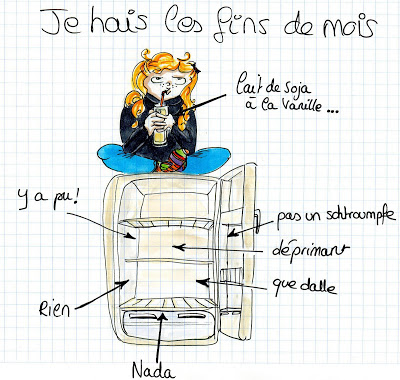 Je hais les fins de mois
lait de soja
à la vanille...
y a pu!
pas un schtroumpfe
déprimant
que dalle
Rien
Nada